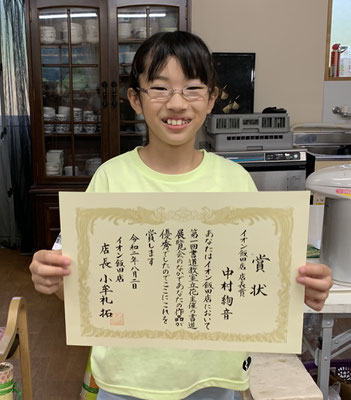 賞状
イオン飯田店 店長賞
中村絢音
あなたはイオン飯田店において
第一回書道教室立花主催の書道
展覧会のなかであなたの作品が
優秀でしたのでここにこれを
賞します
令和二年八月二日
イオン飯田店
店長 小牟礼 拓